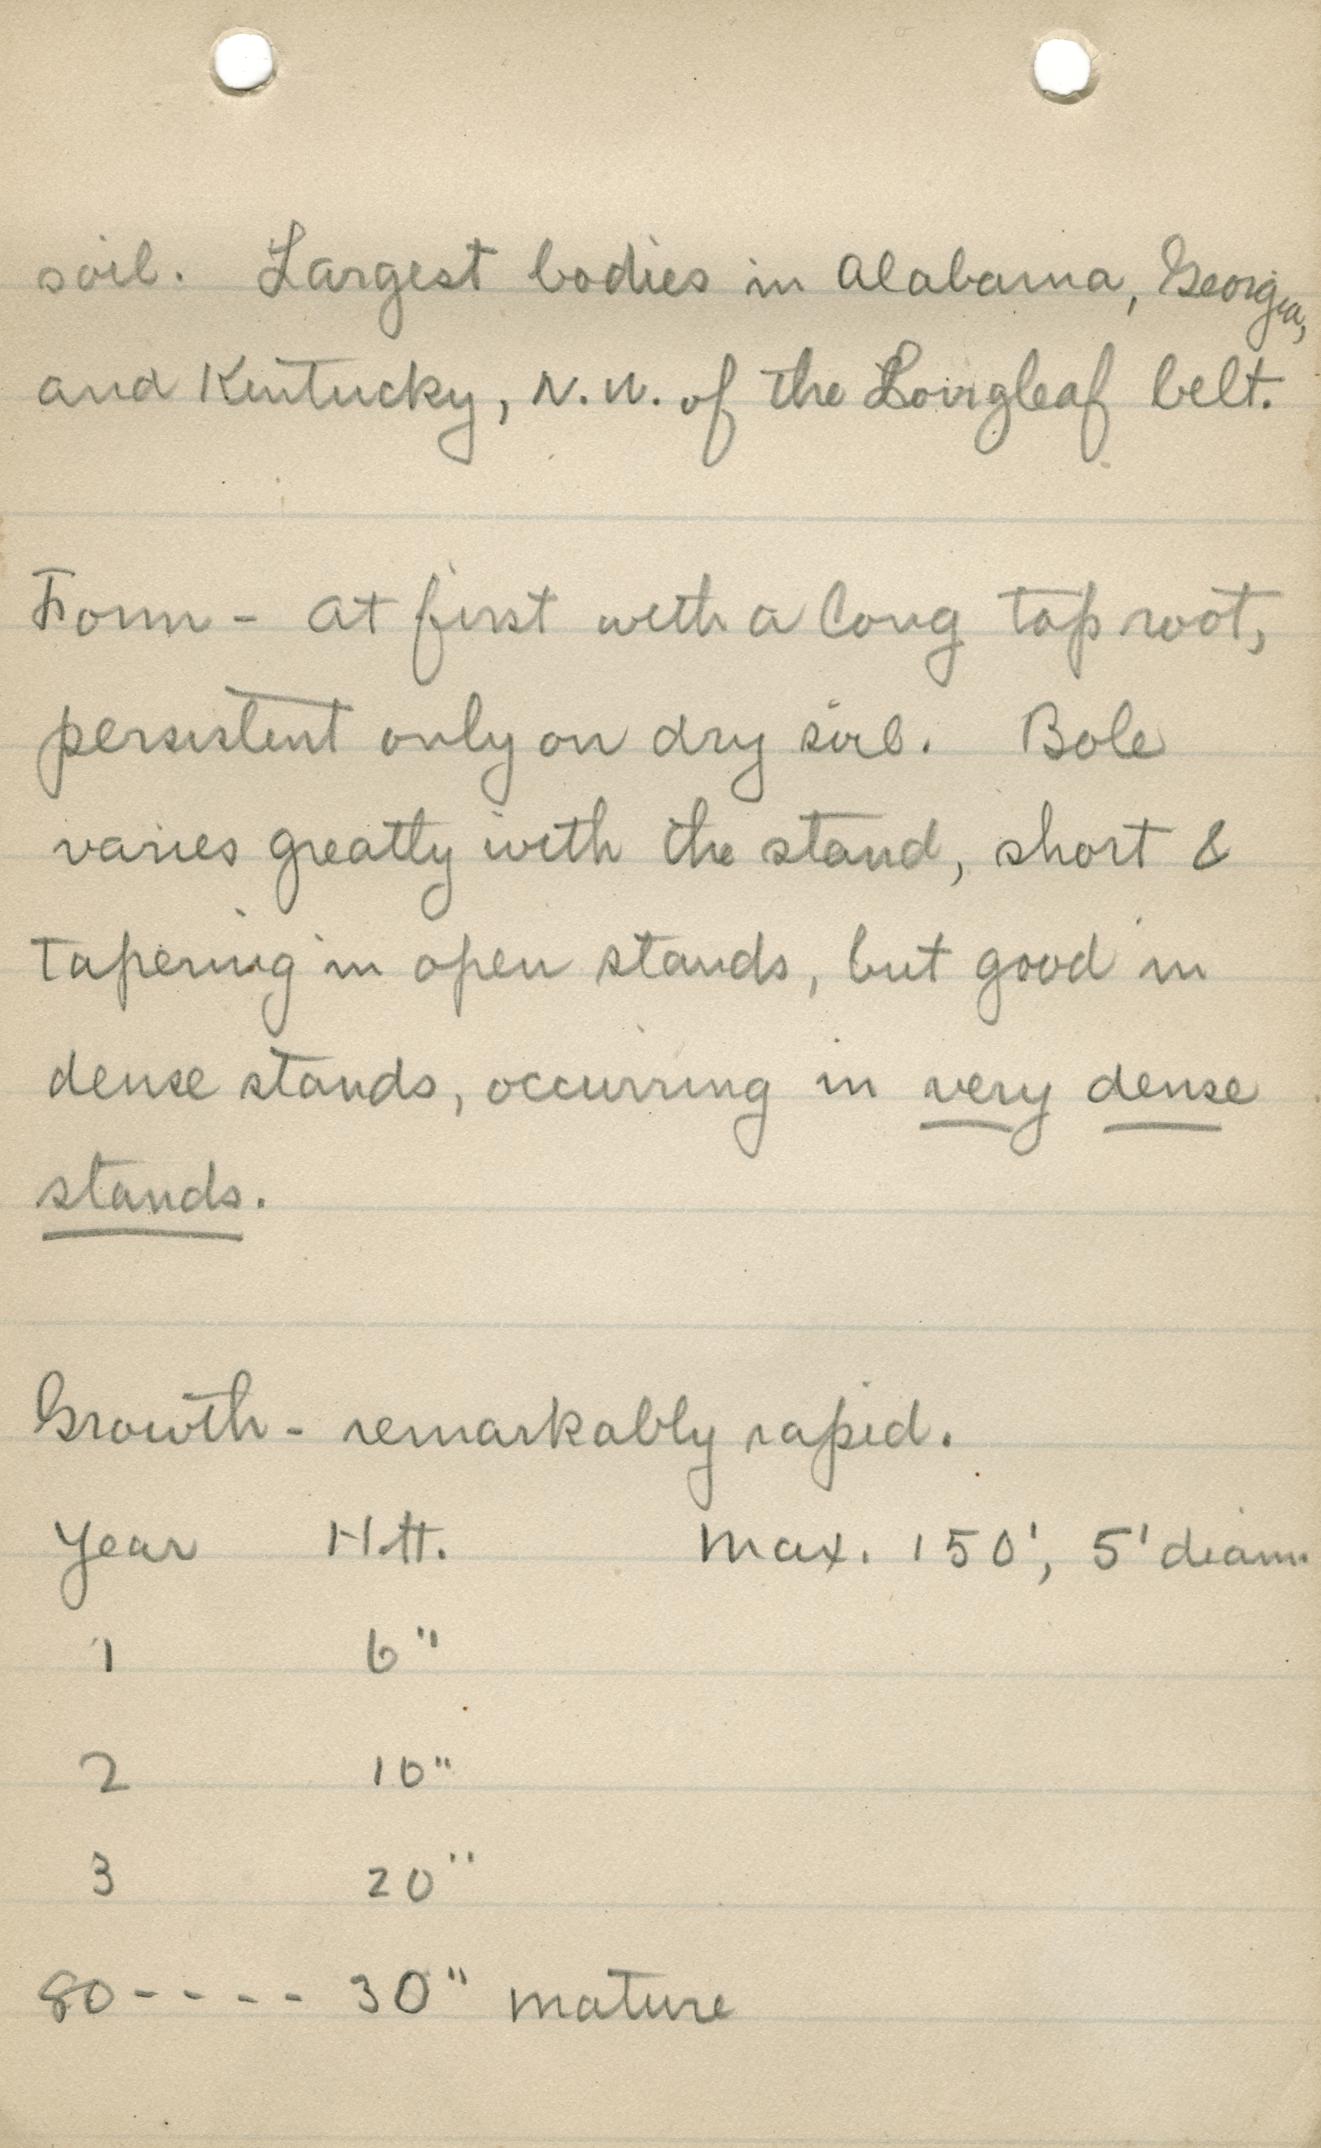 soil. Largest bodies in Alabama, Georgia,
and Kentucky, N.W. of the Longleaf belt.
Form - at first with a long tap root,
persistent only on dry soil. Bole
varies greatly with the stand, short &
tapering in open stands, but good in
dense stands, occurring in very dense
stands.
Growth - remarkably rapid.
Year Htt. Max. 150', 5' diam.
1 6"
2 10"
3 20"
80 - - - - 30" mature